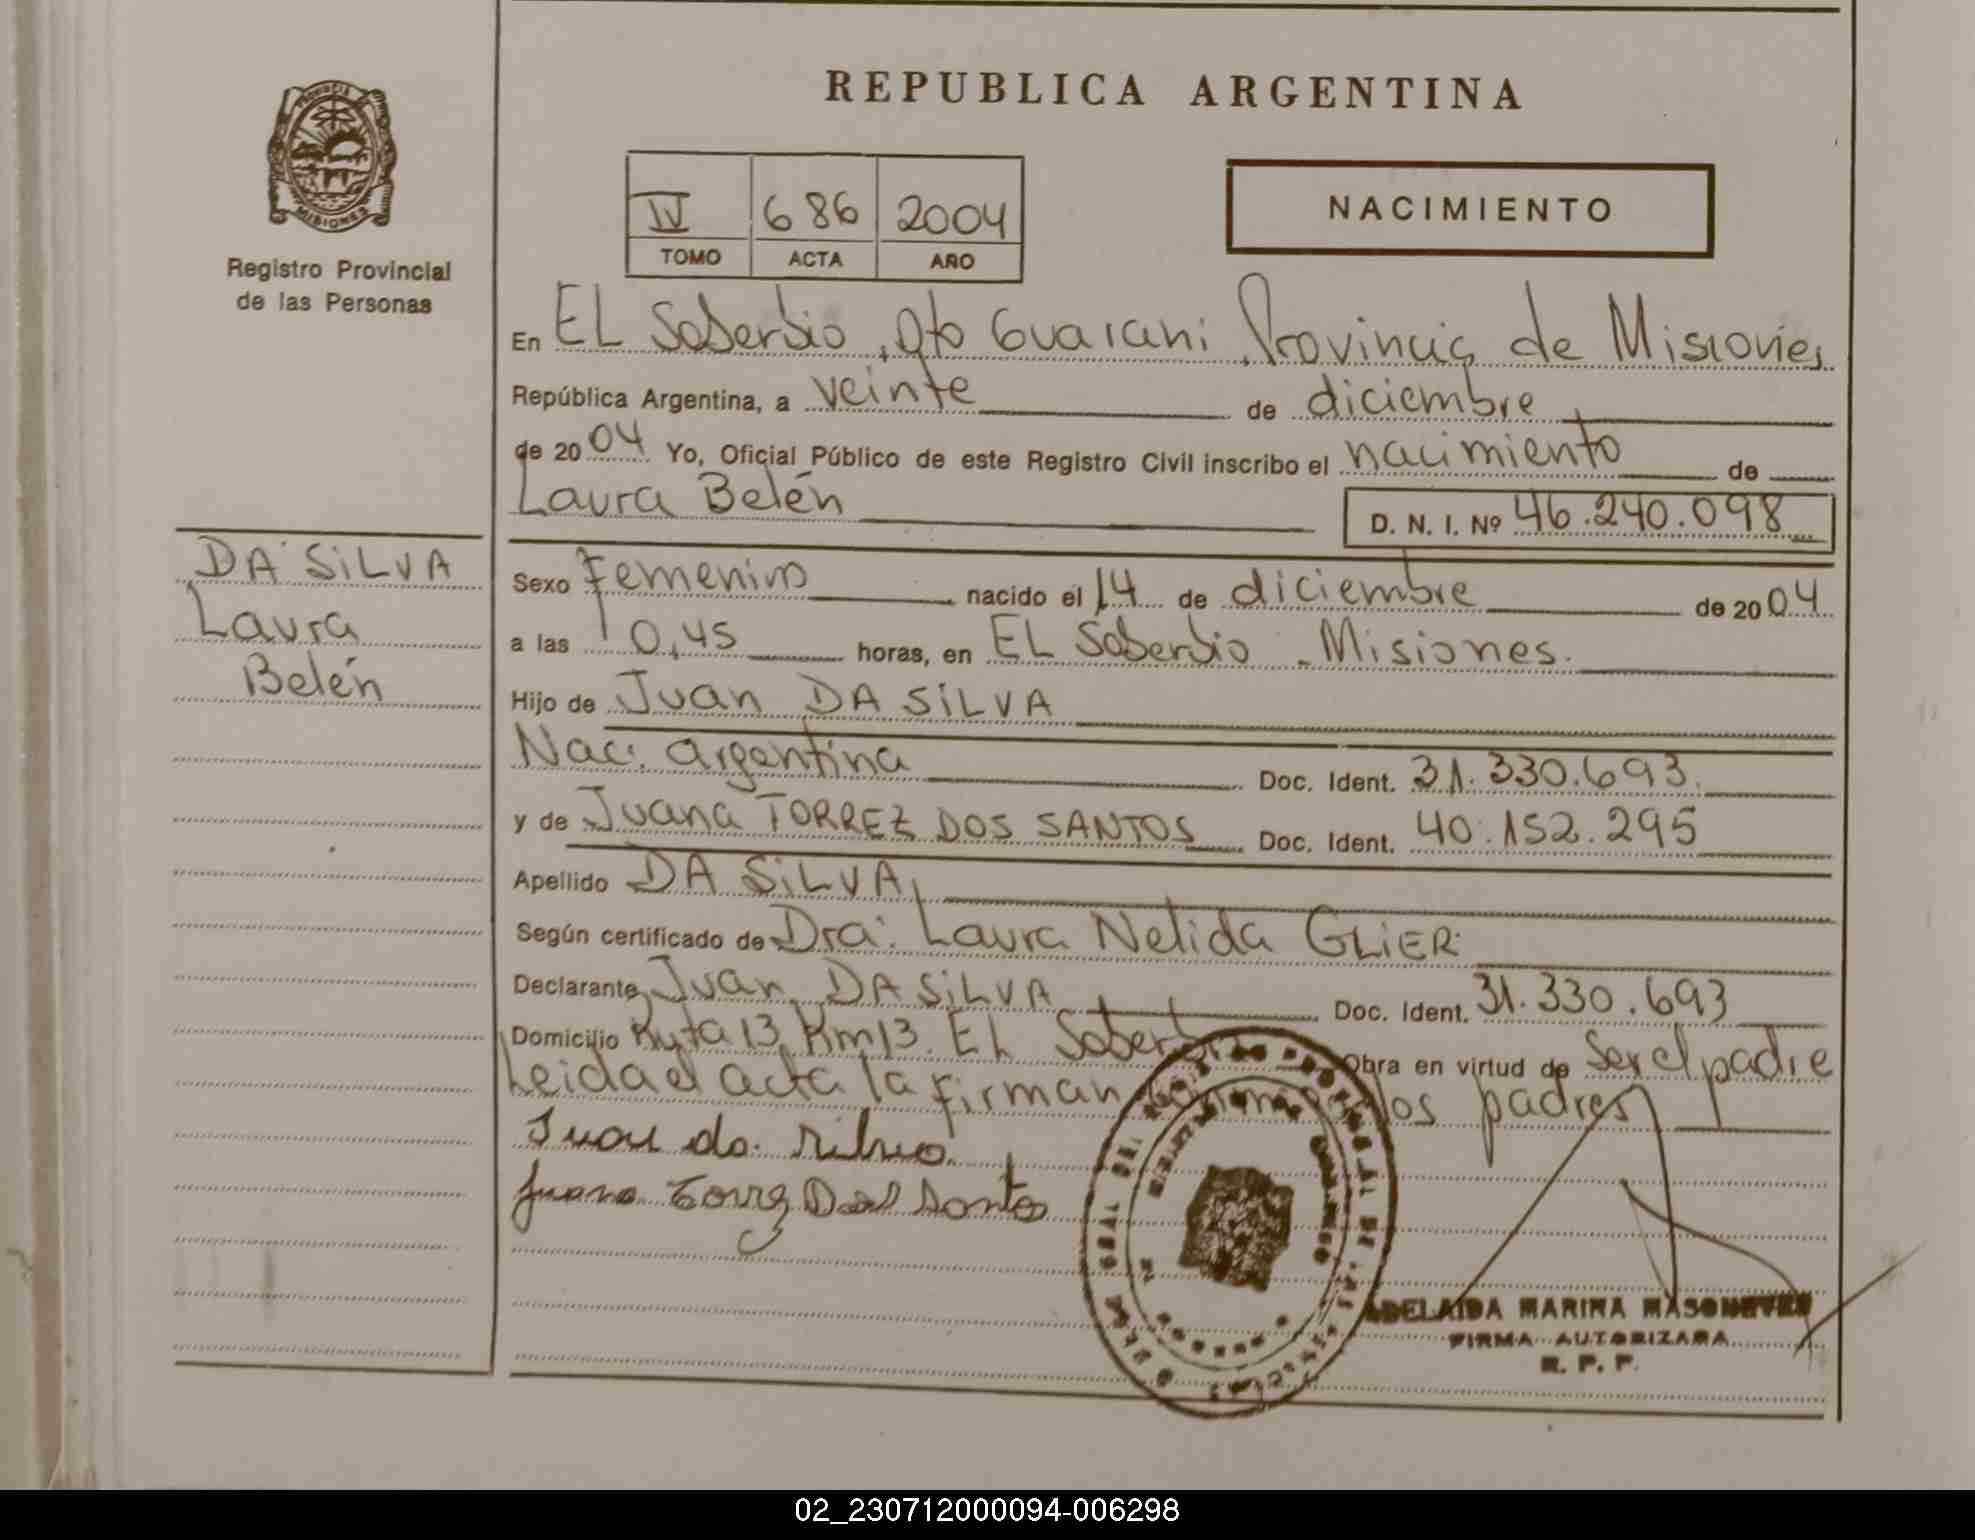 REPUBLICA ARGENTINA
PROVINCIA
MISIONES
Registro Provincial
de las Personas
IV 686 2004
TOMO ACTA AÑO
NACIMIENTO
En EL Soberbio, Dto Guarani Provincia de Misiones
República Argentina, a veinte de diciembre
de 2004 Yo, Oficial Público de este Registro Civil inscribo el nacimiento de
Laura Belén D. N. I. Nº 46.240.098
DA SiLVA
Laura
Belén
Sexo Femenino nacido el 14 de diciembre de 2004
a las 0,45 horas, en EL Soberbio - Misiones.
Hijo de Juan DA SiLVA
Nac. argentina Doc. Ident. 31.330.693.
y de Juana TORREZ DOS SANTOS Doc. Ident. 40.152.295
Apellido DA SiLVA
Según certificado de Dra. Laura Nelida GLiER
Declarante Juan DA SiLVA Doc. Ident. 31.330.693
Domicilio Ruta 13 Km 13. EL Soberbio Obra en virtud de Ser el padre
Leida el acta la firman los padres
Juan da silva
Juana Torrez Dos Santos
ADELAIDA MARINA
FIRMA AUTORIZADA
R. P. P.
02_230712000094-006298